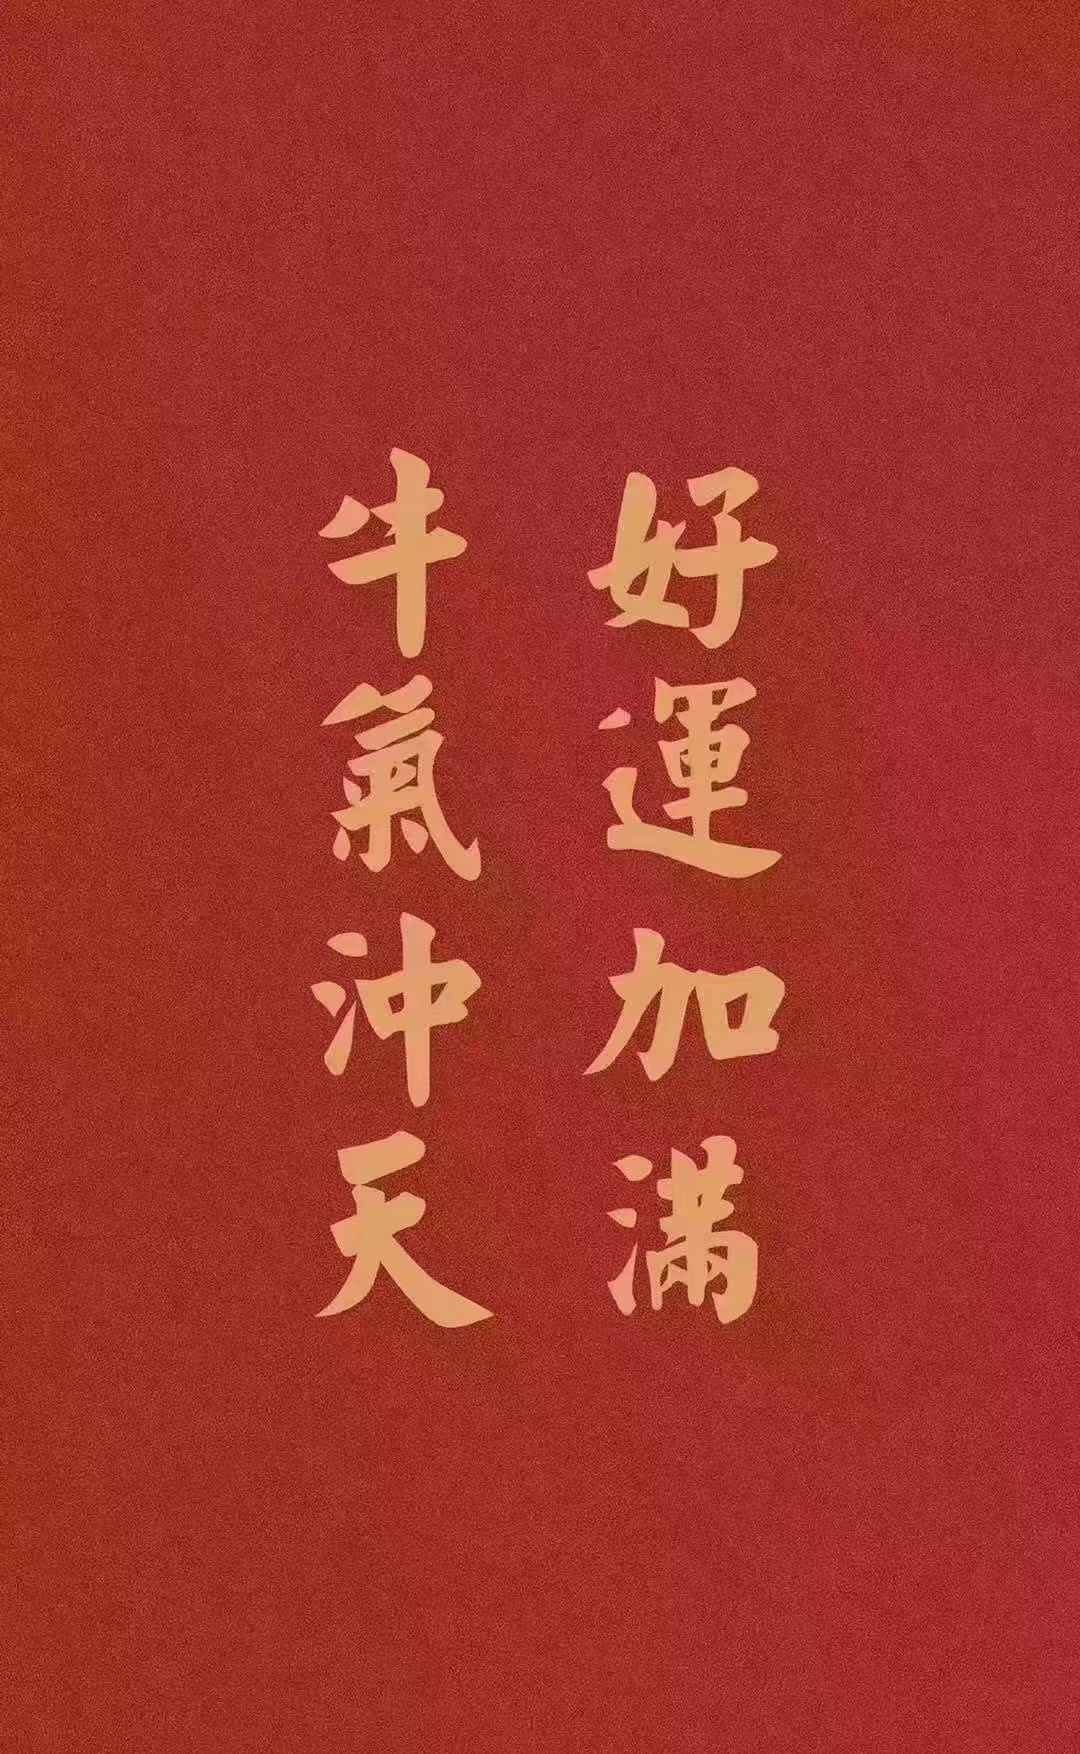 好運加滿
牛氣沖天